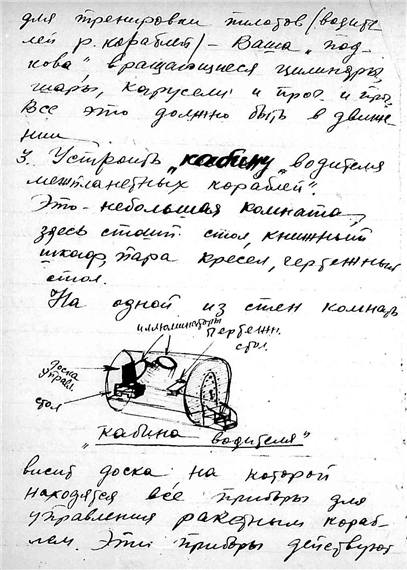 для тренировки пилотов (водите-
лей р. кораблей) – Ваша „под-
кова", вращающиеся цилиндры,
шары, карусели и проч. и проч.
Все это должно быть в движе-
нии.
3. Устроить „кабину „водителя
межпланетных кораблей".
Это – небольшая комната,
здесь стоит стол, книжный
шкаф, пара кресел, чертежный
стол.
На одной из стен комнаты
иллюминаторы
Чертежн.
стол.
Доска
управл.
стол
„Кабина водителя"
висит доска на которой
находятся все приборы для
управления ракетным кораб-
лем. Эти приборы действуют